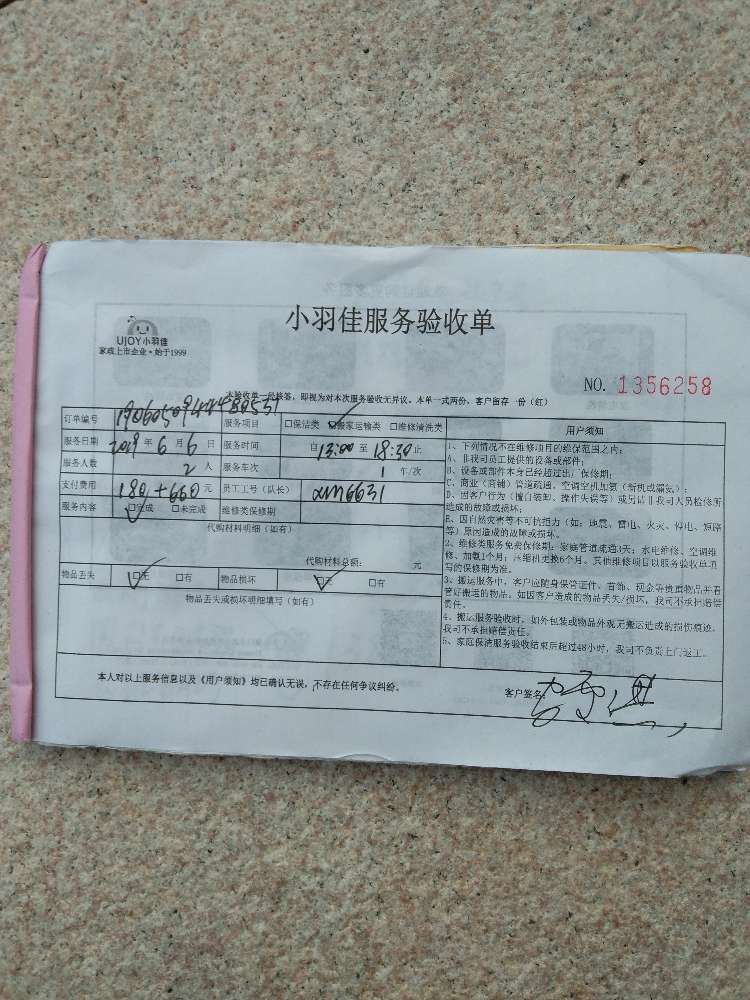 小羽佳服务验收单
UJOY小羽佳
家政上市企业·始于1999
NO. 1356258
本验收单一经核签，即视为对本次服务验收无异议。本单一式两份，客户留存一份（红）
订单编号 服务项目 口保洁类 口搬家运物类 口维修清洗类 用户须知
服务日期 2019 年 6 月 6 日 服务时间 自 13:00 至 18:30 止
服务人数 2 人 服务车次 1 车/次
支付费用 180+660 元 员工工号（队长） xm6631
服务内容 口完成 口未完成 维修类保修期
代购材料明细（如有）
代购材料总额： 元
物品丢失 口无 口有 物品损坏 口无 口有
物品丢失或损坏明细填写（如有）
1、下列情况不在维修项目的维保范围之内：
A、非我司员工提供的设备或部件；
B、设备或部件本身已经超过出厂保修期；
C、商业（商铺）管道疏通、空调空机加氨（新机或漏氨）；
D、因客户行为（擅自装卸、操作失误等）或另请非我司人员检修所
造成的故障或损坏；
E、因自然灾害等不可抗拒力（如：地震、雷电、火灾、停电、短路
等）原因造成的故障或损坏。
2、维修类服务免费保修期：家庭管道疏通3天；水电维修、空调维
修、加氨1个月；压缩机更换6个月。其他维修项目以服务验收单填
写的保修期为准。
3、搬运服务中，客户应随身保管证件、首饰、现金等贵重物品并看
管好搬运的物品。如因客户造成的物品丢失/损坏，我司不承担赔偿
责任。
4、搬运服务验收时，如外包装或物品外观无搬运造成的损伤痕迹，
我司不承担赔偿责任。
5、家庭保洁服务验收结束后超过48小时，我司不负责上门返工。
本人对以上服务信息以及《用户须知》均已确认无误，不存在任何争议纠纷。 客户签名：